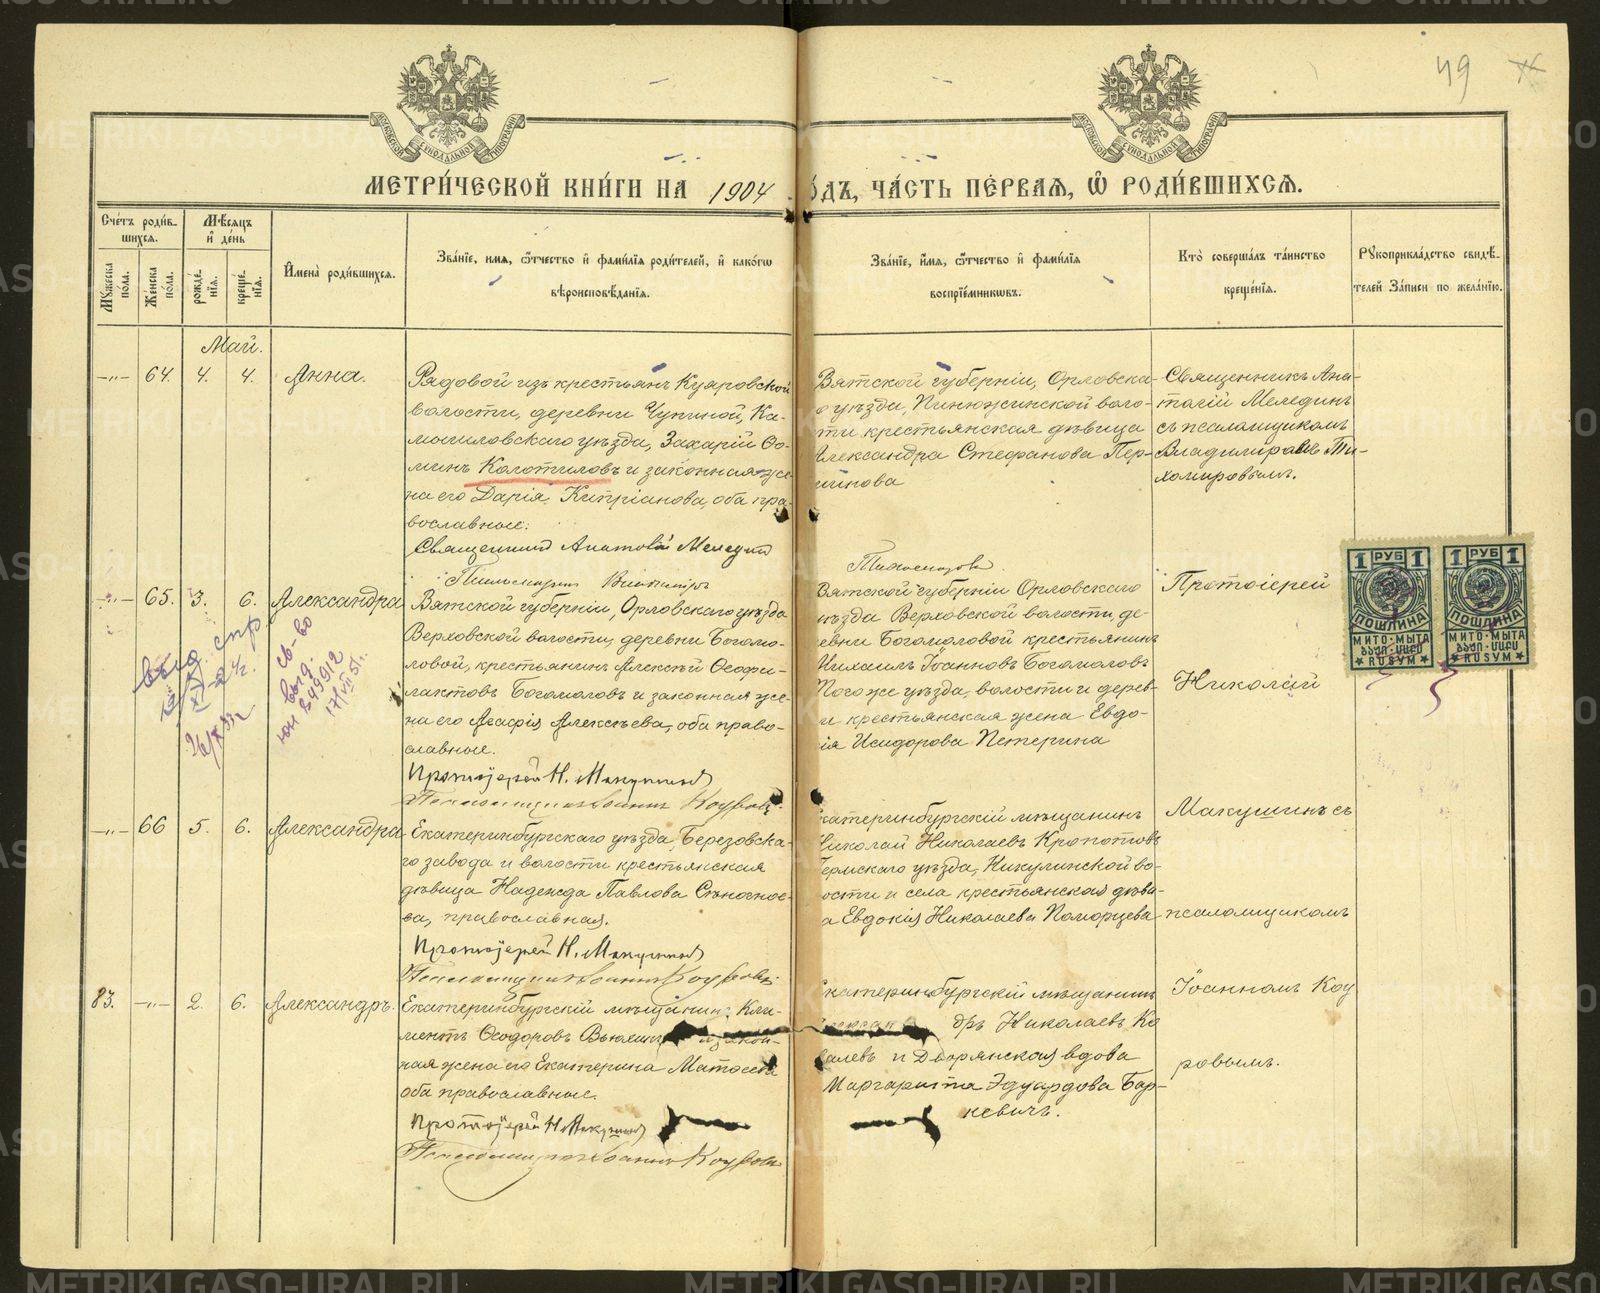 49
МЕТРИ́ЧЕСКОЙ КНИ́ГИ НА 1904 ГО́ДЪ, ЧА́СТЬ ПЕ́РВАЯ, Ѡ҆ РОДИ́ВШИХСЯ.
Сче́тъ роди́в-
шихся.
Мѣ́сяцъ
и҆ де́нь
Мꙋ́жеска по́ла.
Же́нска по́ла.
рожде́-
нїя.
креще́-
нїя.
И҆мена̀ роди́вшихся.
Зва́нїе, и҆мя, ѻ҆́тчество и҆ фами́лїя роди́телей, и҆ како́гѡ
вѣроисповѣ́данїя.
Зва́нїе, и҆́мя, ѻ҆́тчество и҆ фами́лїя
воспрїе́мникѡвъ.
Кто̀ соверша́лъ та́инство
креще́нїя.
Рꙋкоприкла́дство свидѣ́-
телей за́писи по жела́нїю.
Май.
—„— 64. 4. 4. Анна.
Рядовой изъ крестьянъ Куяровской
волости, деревни Чупиной, Ка-
мышловскаго уѣзда, Захарій Ѳо-
минъ Колотиловъ и законная же-
на его Дарія Кипріанова, оба пра-
вославные.
Священник Анатолій Меледин
Псаломщик Владимиръ Тихомиров
Вятской губерніи, Орловска-
го уѣзда, Пинюжинской воло-
сти крестьянская дѣвица
Александра Стефанова Пер-
шинова
Священникъ Ана-
толій Мелединъ
съ псаломщикомъ
Владиміромъ Ти-
хомировымъ.
—„— 65. 3. 6. Александра
Вятской губерніи, Орловскаго уѣзда
Верховской волости, деревни Богомо-
ловой, крестьянинъ Алексѣй Ѳеофи-
лактовъ Богомоловъ и законная же-
на его Агафія Алексѣева, оба право-
славные.
Протоіерей Н. Макушинъ
Псаломщикъ Іоаннъ Коуровъ
Вятской губерніи Орловскаго
уѣзда Верховской волости, де-
ревни Богомоловой крестьянинъ
Михаилъ Іоанновъ Богомоловъ
Того же уѣзда, волости и дерев-
ни крестьянская жена Евдо-
кія Исидорова Петерина
Протоіерей
Николай
Макушинъ съ
псаломщикомъ
Іоанномъ Коу
ровымъ.
выд. спр
выд. св-во
ЮН 849912
17/VII 51г.
—„— 66 5. 6. Александра
Екатеринбургскаго уѣзда, Березовска-
го завода и волости крестьянская
дѣвица Надежда Павлова
православная.
Протоіерей Н. Макушинъ
Псаломщикъ Іоаннъ Коуровъ
Екатеринбургскій мѣщанинъ
Николай Николаевъ Кропотовъ
Пермскаго уѣзда, Никулинской во-
лости и села крестьянская дѣви-
ца Евдокія Николаева Поморцева
83. —„— 2. 6. Александръ.
Екатеринбургскій мѣщанинъ Кли-
ментъ Ѳеодоровъ и закон-
ная жена его Екатерина Матѳеева
оба православные.
Протоіерей Н. Макушинъ
Псаломщикъ Іоаннъ Коуровъ
Екатеринбургскій мѣщанинъ
дръ Николаевъ Ко
валевъ и Дворянская вдова
Маргарита Эдуардова Бар-
кевичъ.
1 РУБ 1
ПОШЛИНА
МИТО·МЫТА
RÜSYM
1 РУБ 1
ПОШЛИНА
МИТО·МЫТА
RÜSYM
METRIKI.GASO-URAL.RU